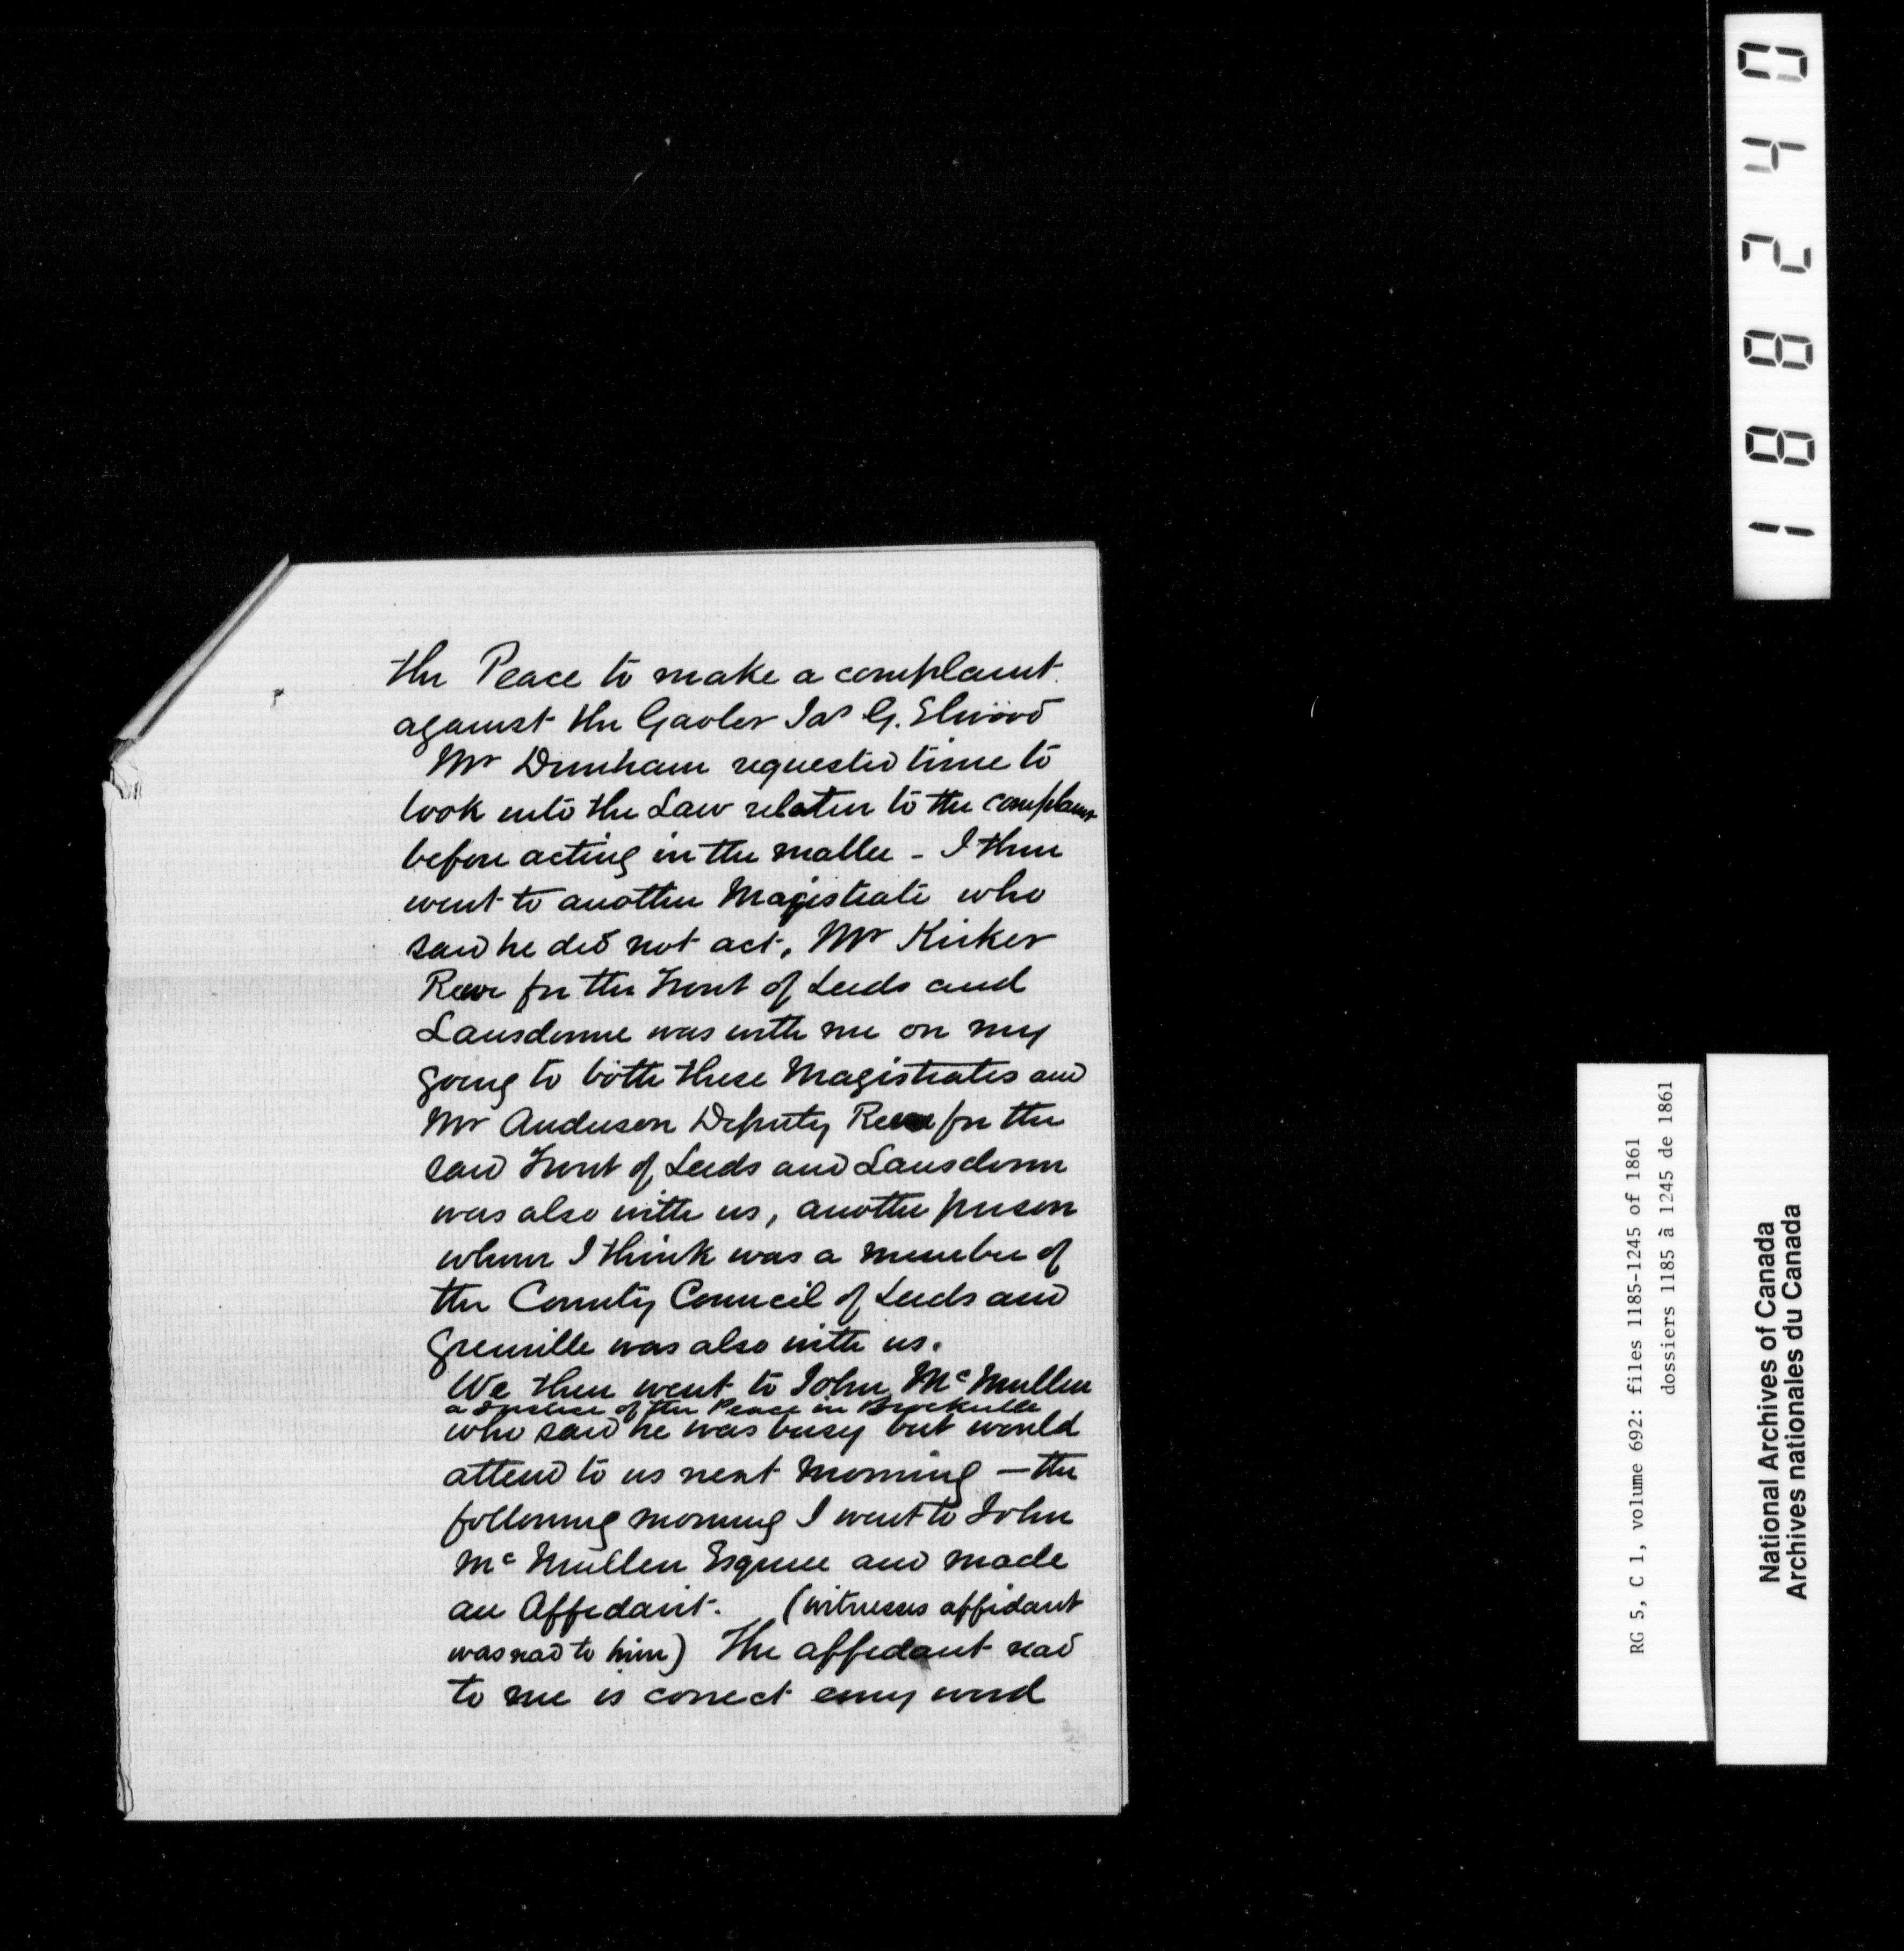 the Peace to make a complaint
against the Gaoler Jas G. Elwood
Mr Dunham requested time to
look into the Law relative to the complaint
before acting in the matter - I then
went to another Magistrate who
said he did not act, Mr Kirker
Reeve for the Front of Leeds and
Lansdowne was with me on my
going to both these Magistrates and
Mr Anderson Deputy Reeve for the
said Front of Leeds and Lansdown
was also with us, another person
whom I think was a member of
the County Council of Leeds and
Grenville was also with us.
We then went to John Mc Mullen
a Justice of the Peace in Brockville
who said he was busy but would
attend to us next morning — the
following morning I went to John
Mc Mullen Esquire and made
an Affidavit. (witnesses affidavit
was read to him) The affidavit read
to me is correct every word
188240
RG 5, C 1, volume 692: files 1185-1245 of 1861
dossiers 1185 à 1245 de 1861
National Archives of Canada
Archives nationales du Canada